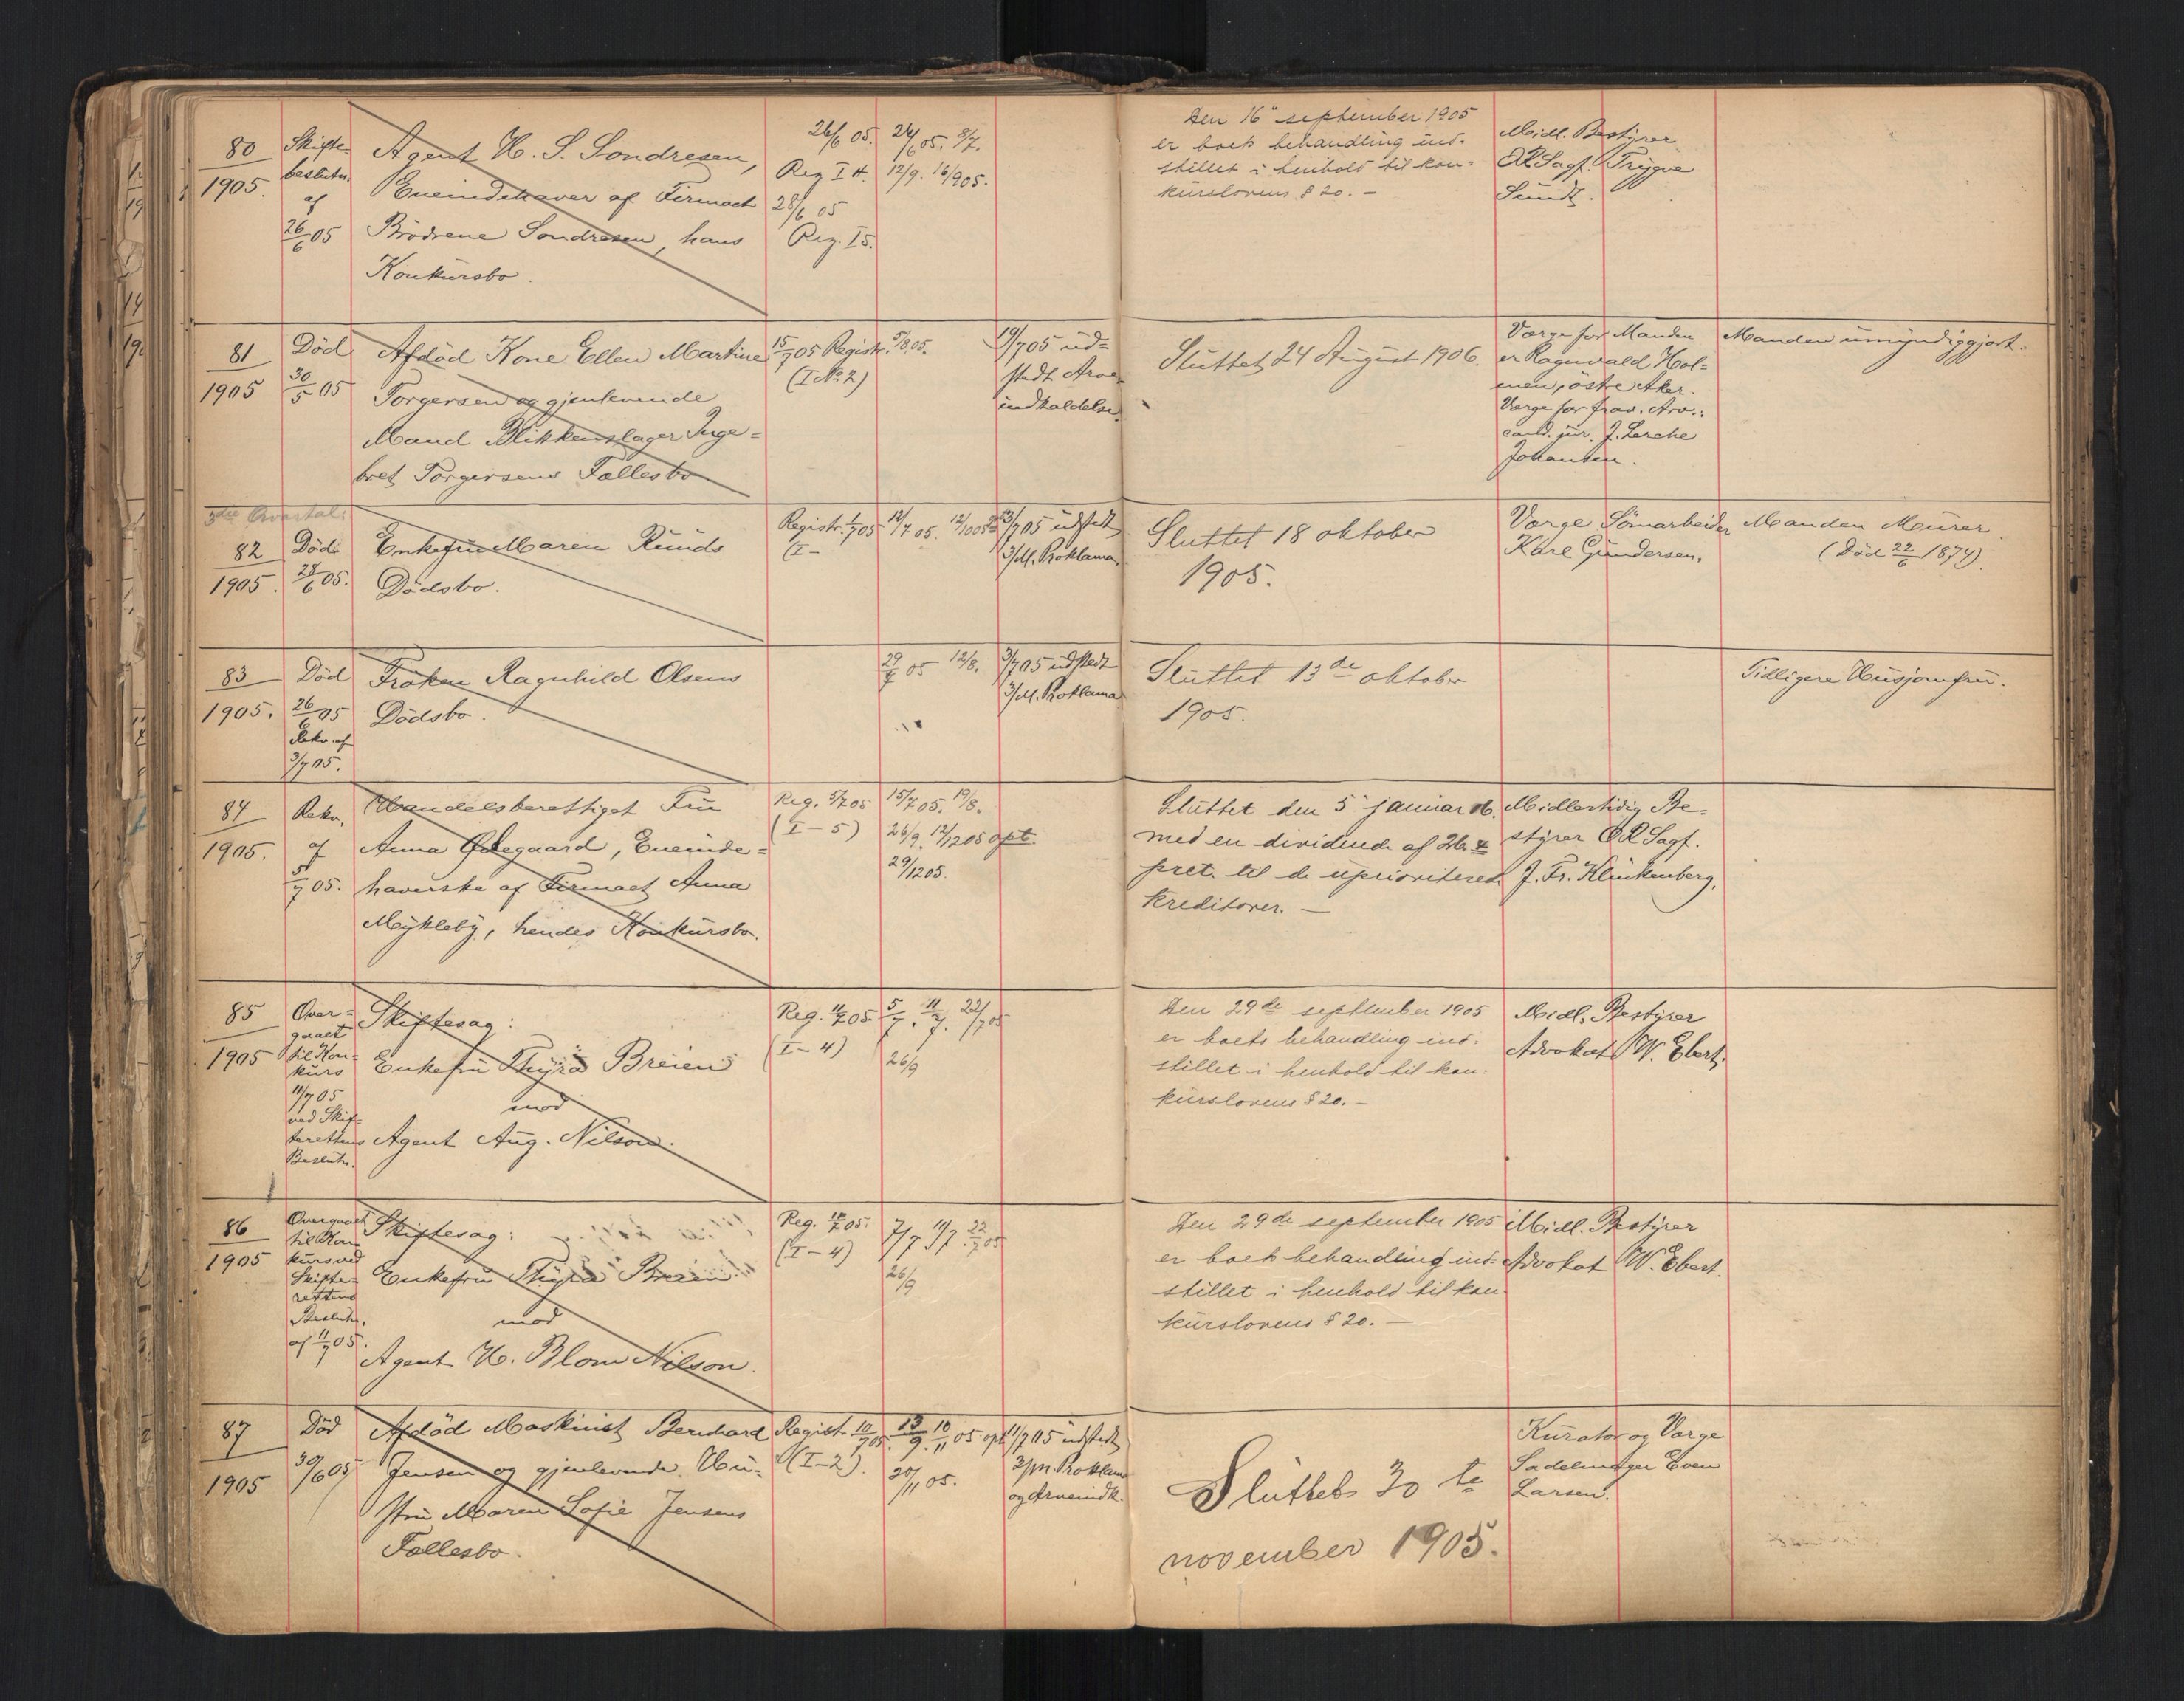 80
1905.
Skifte-
beslutn.
af
26/6 05
Agent H. S. Sondresen,
Eneindehaver af Firmaet
Brödrene Sondresen, hans
Konkursbo.
26/6 05.
Reg I 4.
28/6 05
Reg. I 5.
24/6 05. 8/7.
12/9. 16/9 05.
Den 16 september 1905
er boets behandling ind-
stillet i henhold til kon-
kurslovens § 20. —
Midl. Bestyrer
O.R.Sagf. Trygve
Sundt.
81
1905
Död
30/5 05
Afdöd Kone Ellen Martine
Torgersen og gjenlevende
Mand Blikkenslager Inge=
bret Torgersens Fællesbo
15/7 05 Registr.
(I No 2)
5/8 05.
19/7 05 ud=
stedt Arve-
indkaldelse.
Sluttet 24 August 1906.
Værge for Manden
er Ragnvald Hol=
men, östre Aker.
Værge for frav. Arv.:
cand. jur. J. Lerche
Johansen.
Manden umyndiggjort.
3die Qvartal:
82
1905.
Död
28/6 05.
Enkefru Maren Runds
Dödsbo.
Registr. 1/7 05
(I-
12/7 05.
3/7 05 udstedt
3/M. Proklama.
Sluttet 18 oktober
1905.
Værge Sömarbeider
Karl Gundersen.
Manden Murer.
(Död 22/6 1874).
83
1905.
Död
26/6 05
Rekv. af
3/7 05.
Fröken Ragnhild Olsens
Dödsbo.
29/7 05 12/8.
3/7 05 udstedt
3/M. Proklama
Sluttet 13de oktober
1905.
Tidligere Husjomfru.
84
1905.
Rekv.
af
5/7 05.
Handelsberettiget Fru
Anna Ødegaard, Eneinde=
haverske af Firmaet Anna
Mykleby, hendes Konkursbo.
Reg. 5/7 05
(I-5)
15/7 05, 19/8.
26/9. 12/12 05 opt.
29/12 05.
Sluttet den 5 januar 06.
med en dividende af
prct. til de uprioriterede
kreditorer. —
Midlertidig Be-
styrer O.R.Sagf.
J. Fr. Klinkenberg.
85
1905
Over=
gaaet
til Kon=
kurs
11/7 05
ved Skif-
terettens
Beslutn.
Skiftesag:
Enkefru Thyra Breien
mod
Agent Aug. Nilson.
Reg. 11/7 05
(I-4)
5/7. 11/7. 22/7 05
26/9
Den 29de september 1905
er boets behandling ind-
stillet i henhold til kon-
kurslovens § 20. —
Midl. Bestyrer
Advokat W. Ebert.
86
1905
Overgaaet
til Kon-
kurs ved
Skifte-
rettens
Beslutn.
af 11/7 05.
Skiftesag:
Enkefru Thyra Breien
mod
Agent H. Blom Nilson.
Reg. 12/7 05.
(I-4)
7/7 11/7. 22/7 05
26/9
Den 29de september 1905
er boets behandling ind=
stillet i henhold til kon-
kurslovens § 20. —
Midl. Bestyrer
Advokat W. Ebert.
87
1905
Död
30/6 05
Afdöd Maskinist Bernhard
Jensen og gjenlevende Hu=
stru Maren Sofie Jensens
Fællesbo.
Registr. 10/7 05.
(I-2).
13/9. 10/11 05 opt
20/11 05.
11/7 05 udstedt
3/m. Proklama
og Arveindk.
Sluttet 30te
november 1905.
Kurator og Værge
Sadelmager Even
Larsen.